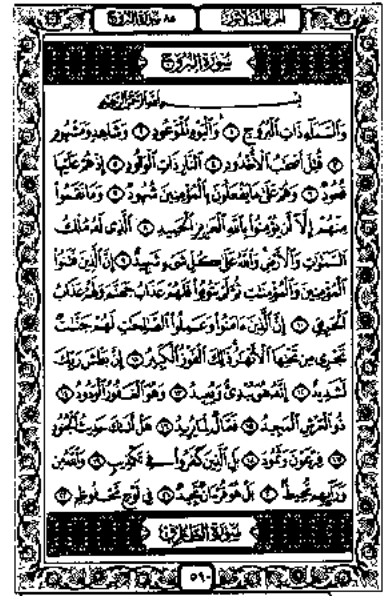 ٨٥ سورة البروج الجزء الثلاثون
سُورَةُ الْبُرُوجِ
بِسْمِ اللَّهِ الرَّحْمَٰنِ الرَّحِيمِ
وَالسَّمَاءِ ذَاتِ الْبُرُوجِ ١ وَالْيَوْمِ الْمَوْعُودِ ٢ وَشَاهِدٍ وَمَشْهُودٍ
٣ قُتِلَ أَصْحَٰبُ الْأُخْدُودِ ٤ النَّارِ ذَاتِ الْوَقُودِ ٥ إِذْ هُمْ عَلَيْهَا
قُعُودٌ ٦ وَهُمْ عَلَىٰ مَا يَفْعَلُونَ بِالْمُؤْمِنِينَ شُهُودٌ ٧ وَمَا نَقَمُوا
مِنْهُمْ إِلَّا أَن يُؤْمِنُوا بِاللَّهِ الْعَزِيزِ الْحَمِيدِ ٨ الَّذِي لَهُ مُلْكُ
السَّمَٰوَٰتِ وَالْأَرْضِ وَاللَّهُ عَلَىٰ كُلِّ شَيْءٍ شَهِيدٌ ٩ إِنَّ الَّذِينَ فَتَنُوا
الْمُؤْمِنِينَ وَالْمُؤْمِنَٰتِ ثُمَّ لَمْ يَتُوبُوا فَلَهُمْ عَذَابُ جَهَنَّمَ وَلَهُمْ عَذَابُ
الْحَرِيقِ ١٠ إِنَّ الَّذِينَ ءَامَنُوا وَعَمِلُوا الصَّٰلِحَٰتِ لَهُمْ جَنَّٰتٌ
تَجْرِي مِن تَحْتِهَا الْأَنْهَٰرُ ذَٰلِكَ الْفَوْزُ الْكَبِيرُ ١١ إِنَّ بَطْشَ رَبِّكَ
لَشَدِيدٌ ١٢ إِنَّهُ هُوَ يُبْدِئُ وَيُعِيدُ ١٣ وَهُوَ الْغَفُورُ الْوَدُودُ ١٤
ذُو الْعَرْشِ الْمَجِيدُ ١٥ فَعَّالٌ لِّمَا يُرِيدُ ١٦ هَلْ أَتَىٰكَ حَدِيثُ الْجُنُودِ
١٧ فِرْعَوْنَ وَثَمُودَ ١٨ بَلِ الَّذِينَ كَفَرُوا فِي تَكْذِيبٍ ١٩ وَاللَّهُ مِن
وَرَائِهِم مُّحِيطٌ ٢٠ بَلْ هُوَ قُرْءَانٌ مَّجِيدٌ ٢١ فِي لَوْحٍ مَّحْفُوظٍ ٢٢
سُورَةُ الطَّارِقِ
٥٩٠